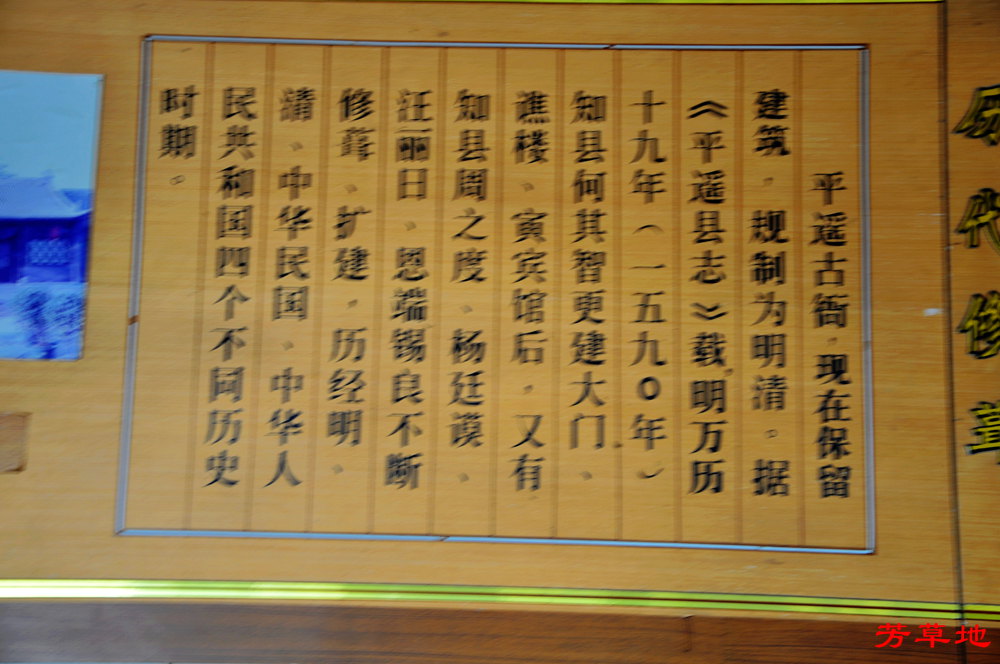 历代修葺
平遥古衙，现在保留
建筑，规制为明清。据
《平遥县志》载，明万历
十九年（一五九〇年）
知县何其智更建大门、
谯楼、寅宾馆后，又有
知县周之度、杨廷谟、
汪丽日、恩端锡良不断
修葺、扩建，历经明、
清、中华民国、中华人
民共和国四个不同历史
时期。
芳草地